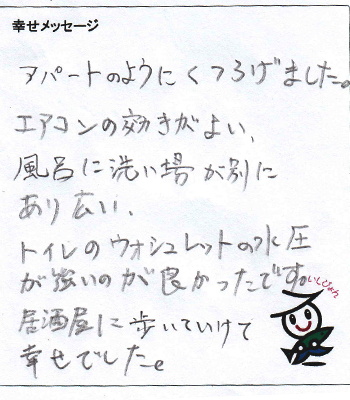 幸せメッセージ
アパートのようにくつろげました。
エアコンの効きがよい、
風呂に洗い場が別に
あり広い、
トイレのウォシュレットの水圧
が強いのが良かったです。
居酒屋に歩いていけて
幸せでした。